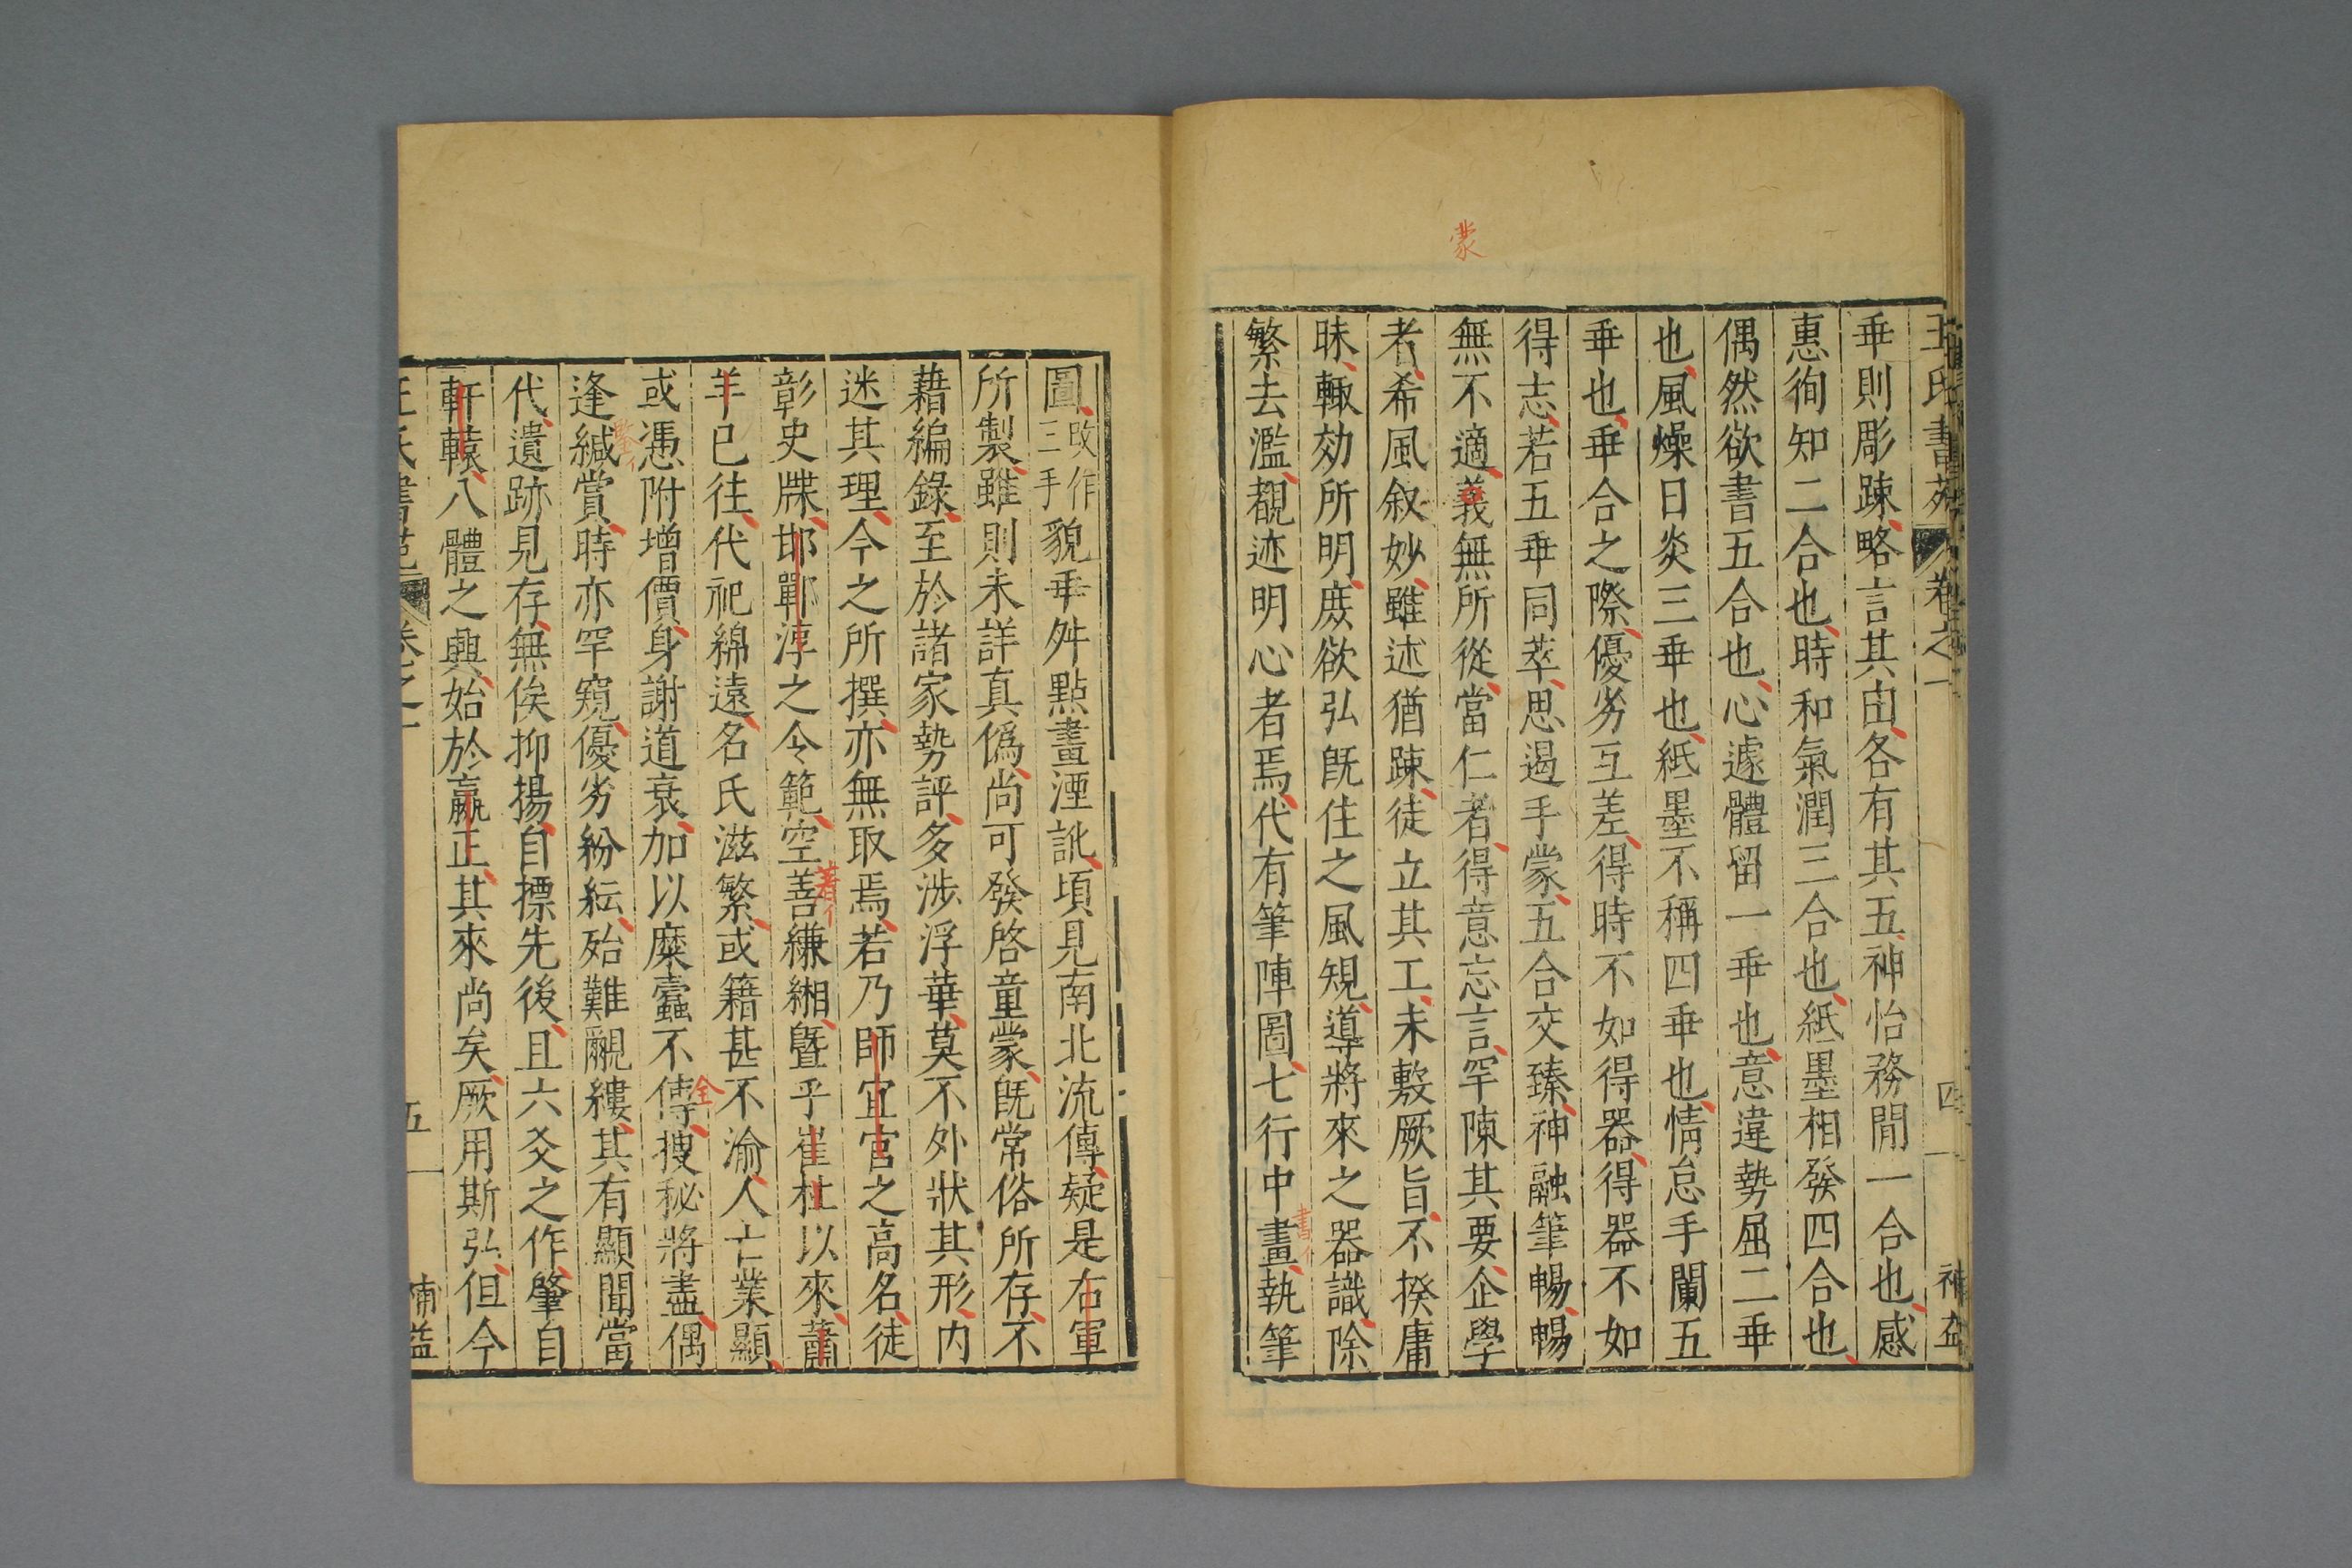 王氏書苑 卷之一 四 補益
乖則彫踈略言其由各有其五神怡務閒一合也感
惠徇知二合也時和氣潤三合也紙墨相發四合也
偶然欲書五合也心遽體留一乖也意違勢屈二乖
也風燥日炎三乖也紙墨不稱四乖也情怠手闌五
乖也乖合之際優劣互差得時不如得器得器不如
得志若五乖同萃思遏手蒙五合交臻神融筆暢暢
蒙
無不適義無所從當仁者得意忘言罕陳其要企學
者希風叙妙雖述猶踈徒立其工未敷厥旨不揆庸
昧輙効所明庶欲弘旣往之風規導將來之器識除
繁去濫覩迹明心者焉代有筆陣圖七行中畫執筆
書
圖
改作
三手
貌乖舛點畫湮訛頃見南北流傳疑是右軍
所製雖則未詳真僞尚可發啓童蒙旣常俗所存不
藉編錄至於諸家勢評多涉浮華莫不外狀其形内
迷其理今之所撰亦無取焉若乃師宜官之高名徒
彰史牒邯鄲淳之令範空善縑緗曁乎崔杜以來蕭
著
羊已往代祀綿遠名氏滋繁或籍甚不渝人亡業顯
或憑附增價身謝道衰加以糜蠹不傳搜秘將盡偶
全
逢緘賞時亦罕窺優劣紛紜殆難覼縷其有顯聞當
代遺跡見存無俟抑揚自摽先後且六爻之作肇自
軒轅八體之興始於嬴正其來尚矣厥用斯弘但今
王氏書苑 卷之一 五 補益